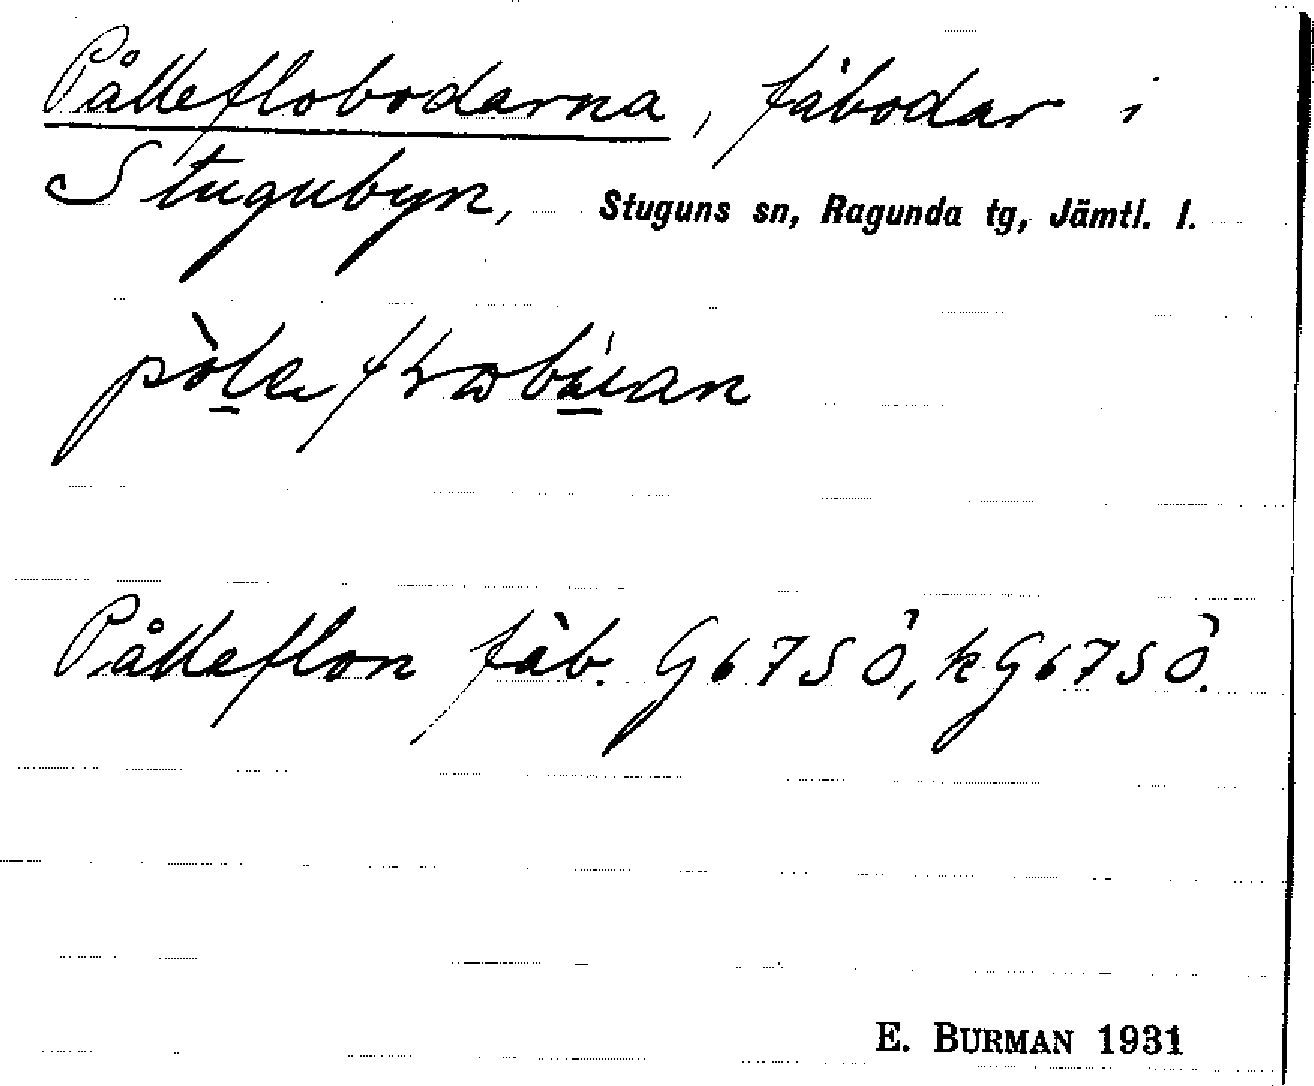 Pålleflobodarna, fäbodar i
Stugubyn, Stuguns sn, Ragunda tg, Jämtl. l.
Pålleflon fäb. G67SÖ, kG67SÖ.
E. BURMAN 1931